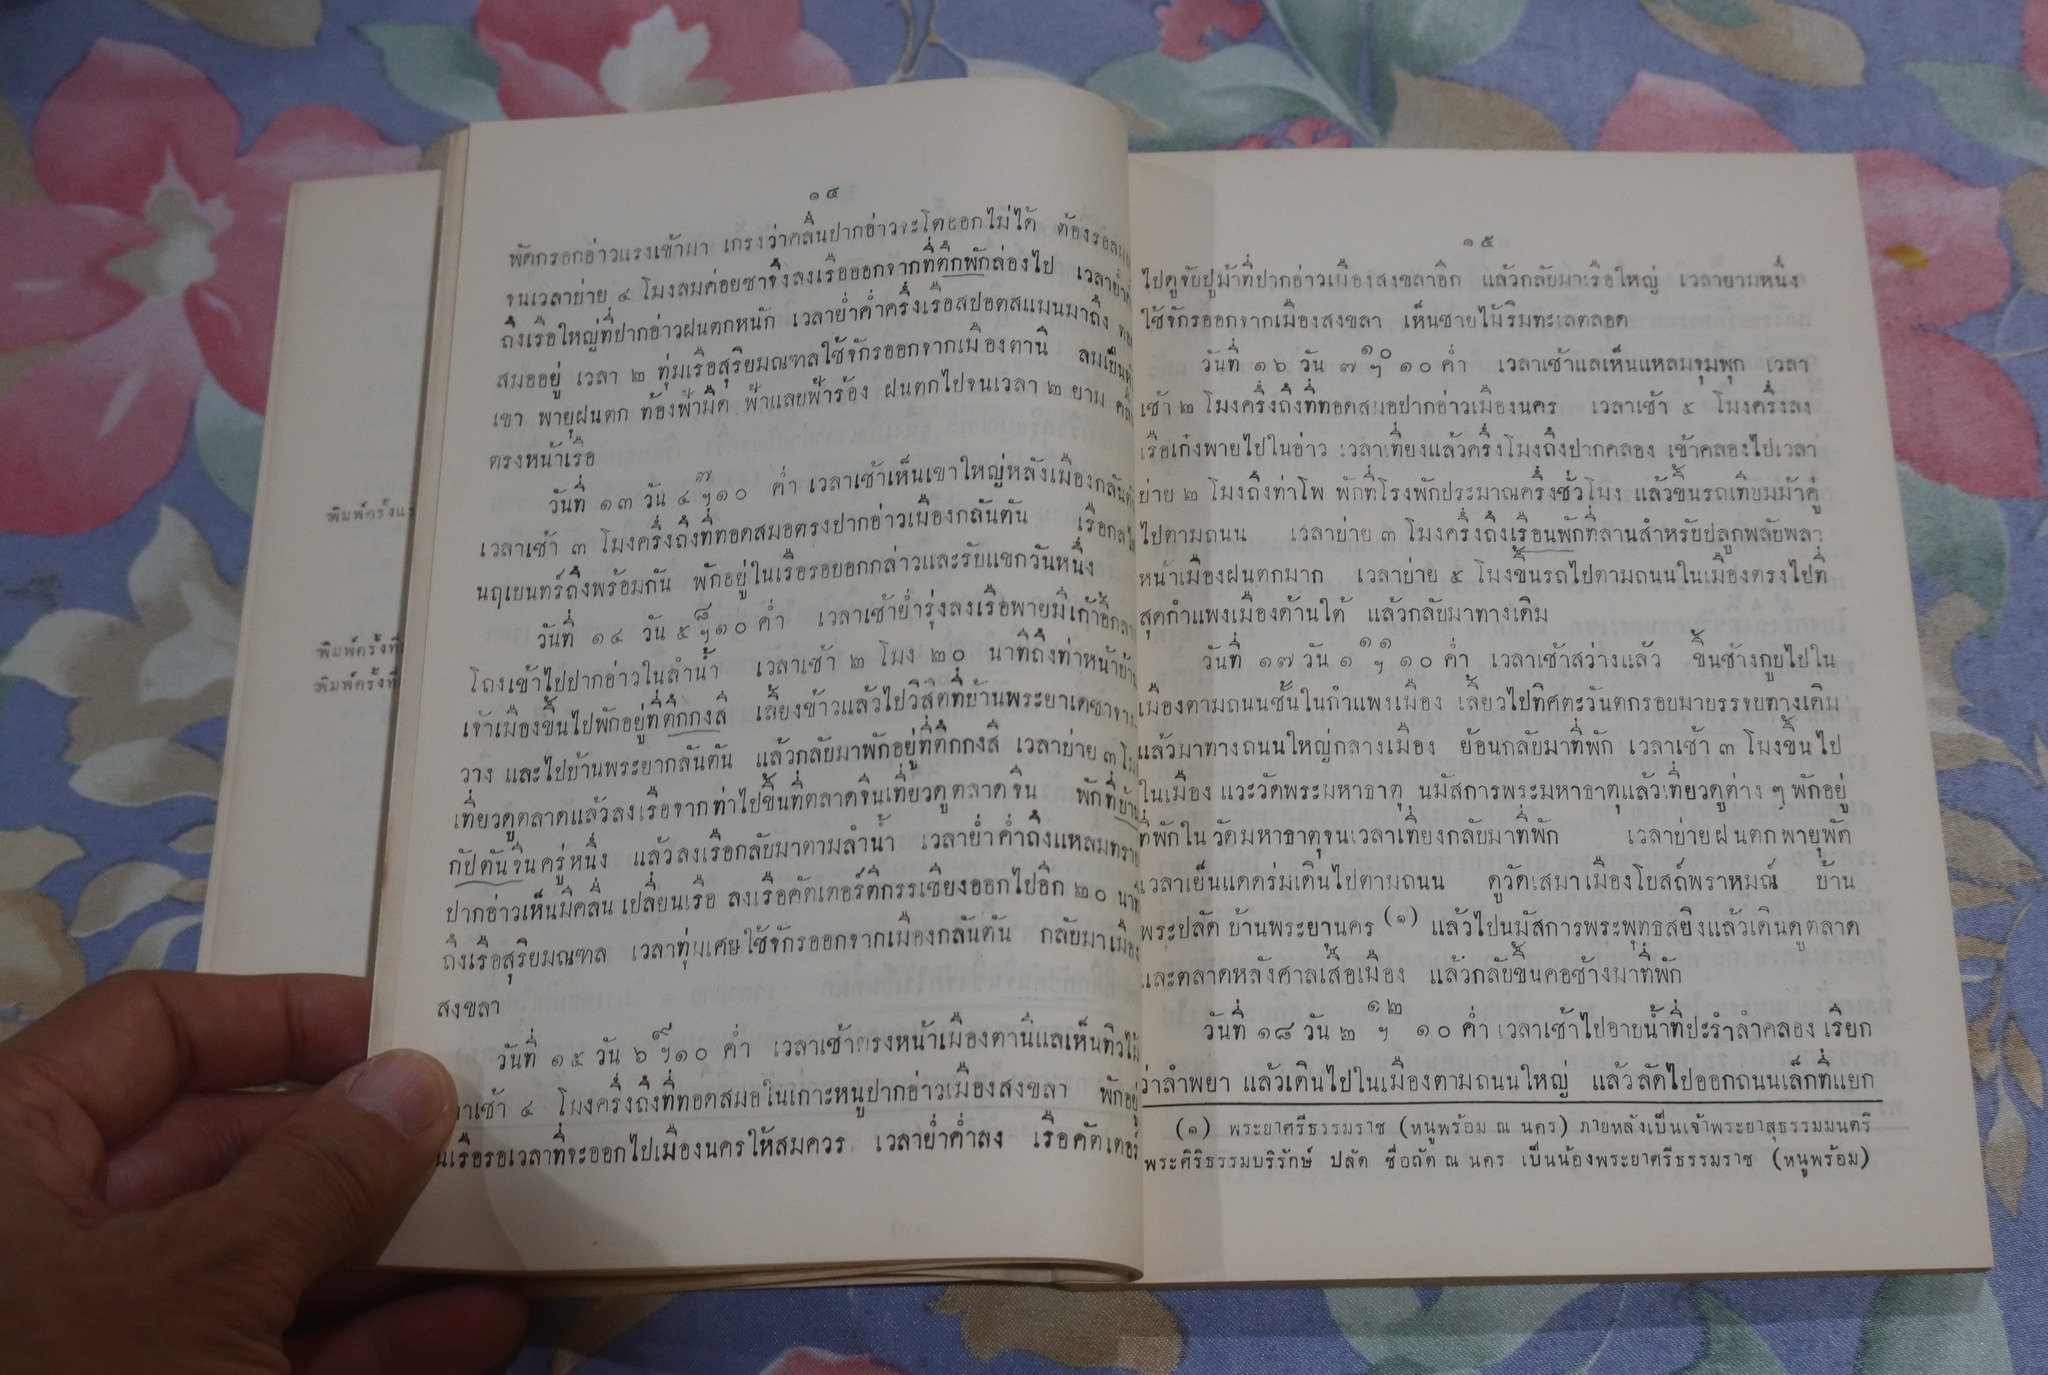 พิมพ์ครั้งแร
พิมพ์ครั้งที่
พิมพ์ครั้งที่
๑๔
พัดกรอกอ่าวแรงเข้ามา เกรงว่าคลื่นปากอ่าวจะโตออกไม่ได้ ต้องรอลม
จนเวลาย่าย ๔ โมงลมค่อยซาจึงลงเรือออกจากที่ตึกพักล่องไป เวลาย่ำค่ำ
ถึงเรือใหญ่ที่ปากอ่าวฝนตกหนัก เวลาย่ำค่ำครึ่งเรือสปอตสแมนมาถึง
สมออยู่ เวลา ๒ ทุ่มเรือสุริยมณฑลใช้จักรออกจากเมืองตานี ลมเป็น
เขา พายุฝนตก ท้องฟ้ามืด ฟ้าแลบฟ้าร้อง ฝนตกไปจนเวลา ๒ ยาม
ตรงหน้าเรือ
วันที่ ๑๓ วัน ๔ ๗ฯ๑๐ ค่ำ เวลาเช้าเห็นเขาใหญ่หลังเมืองกลันตัน
เวลาเช้า ๓ โมงครึ่งถึงที่ทอดสมอตรงปากอ่าวเมืองกลันตัน เรือกลไฟ
นฤเบนทร์ถึงพร้อมกัน พักอยู่ในเรือรอบอกกล่าวและรับแขกวันหนึ่ง
วันที่ ๑๔ วัน ๕ ๘ฯ๑๐ ค่ำ เวลาเช้าย่ำรุ่งลงเรือพายมีเก้าอี้กลา
โถงเข้าไปปากอ่าวในลำน้ำ เวลาเช้า ๒ โมง ๒๐ นาทีถึงท่าหน้าบ้าน
เจ้าเมืองขึ้นไปพักอยู่ที่ตึกกงสี เลี้ยงข้าวแล้วไปวิสิตที่บ้านพระยาเดชาจาง
วาง และไปบ้านพระยากลันตัน แล้วกลับมาพักอยู่ที่ตึกกงสี เวลาย่าย ๓ โมง
เที่ยวดูตลาดแล้วลงเรือจากท่าไปขึ้นที่ตลาดจีนเที่ยวดูตลาดจีน พักที่บ้าน
กัปตันจีนครู่หนึ่ง แล้วลงเรือกลับมาตามลำน้ำ เวลาย่ำค่ำถึงแหลมทราย
ปากอ่าวเห็นมีคลื่น เปลี่ยนเรือ ลงเรือคัตเตอร์ตีกรรเชียงออกไปอีก ๒๐ นาที
ถึงเรือสุริยมณฑล เวลาทุ่มเศษใช้จักรออกจากเมืองกลันตัน กลับมาเมือง
สงขลา
วันที่ ๑๕ วัน ๖ ๙ฯ๑๐ ค่ำ เวลาเช้าตรงหน้าเมืองตานีแลเห็นทิวไม้
ลาเช้า ๔ โมงครึ่งถึงที่ทอดสมอในเกาะหนูปากอ่าวเมืองสงขลา พักอยู่
นเรือรอเวลาที่จะออกไปเมืองนครให้สมควร เวลาย่ำค่ำลง เรือคัตเตอร์
๑๕
ไปดูจับปูม้าที่ปากอ่าวเมืองสงขลาอีก แล้วกลับมาเรือใหญ่ เวลายามหนึ่ง
ใช้จักรออกจากเมืองสงขลา เห็นชายไม้ริมทะเลตลอด
วันที่ ๑๖ วัน ๗ ๑๐ฯ ๑๐ ค่ำ เวลาเช้าแลเห็นแหลมจุมพุก เวลา
เช้า ๒ โมงครึ่งถึงที่ทอดสมอปากอ่าวเมืองนคร เวลาเช้า ๕ โมงครึ่งลง
เรือเก๋งพายไปในอ่าว เวลาเที่ยงแล้วครึ่งโมงถึงปากคลอง เข้าคลองไปเวลา
ย่าย ๒ โมงถึงท่าโพ พักที่โรงพักประมาณครึ่งชั่วโมง แล้วขึ้นรถเทียมม้าคู่
ไปตามถนน เวลาย่าย ๓ โมงครึ่งถึงเรือนพักที่ลานสำหรับปลูกพลับพลา
หน้าเมืองฝนตกมาก เวลาย่าย ๕ โมงขึ้นรถไปตามถนนในเมืองตรงไปที่
สุดกำแพงเมืองด้านใต้ แล้วกลับมาทางเดิม
วันที่ ๑๗ วัน ๑ ๑๑ฯ ๑๐ ค่ำ เวลาเช้าสว่างแล้ว ขึ้นช้างกูบไปใน
เมืองตามถนนชั้นในกำแพงเมือง เลี้ยวไปทิศตะวันตกรอบมาบรรจบทางเดิม
แล้วมาทางถนนใหญ่กลางเมือง ย้อนกลับมาที่พัก เวลาเช้า ๓ โมงขึ้นไป
ในเมือง แวะวัดพระมหาธาตุ นมัสการพระมหาธาตุแล้วเที่ยวดูต่าง ๆ พักอยู่
ที่พักใน วัดมหาธาตุจนเวลาเที่ยงกลับมาที่พัก เวลาย่ายฝนตกพายุพัด
เวลาเย็นแดดร่มเดินไปตามถนน ดูวัดเสมาเมืองโบสถ์พราหมณ์ บ้าน
พระปลัด บ้านพระยานคร (๑) แล้วไปนมัสการพระพุทธสยิงแล้วเดินดูตลาด
และตลาดหลังศาลเสื้อเมือง แล้วกลับขึ้นคอช้างมาที่พัก
วันที่ ๑๘ วัน ๒ ๑๒ฯ ๑๐ ค่ำ เวลาเช้าไปอาบน้ำที่ปะรำลำคลอง เรียก
ว่าลำพยา แล้วเดินไปในเมืองตามถนนใหญ่ แล้วลัดไปออกถนนเล็กที่แยก
(๑) พระยาศรีธรรมราช (หนูพร้อม ณ นคร) ภายหลังเป็นเจ้าพระยาสุธรรมมนตรี
พระศิริธรรมบริรักษ์ ปลัด ชื่อถัด ณ นคร เป็นน้องพระยาศรีธรรมราช (หนูพร้อม)